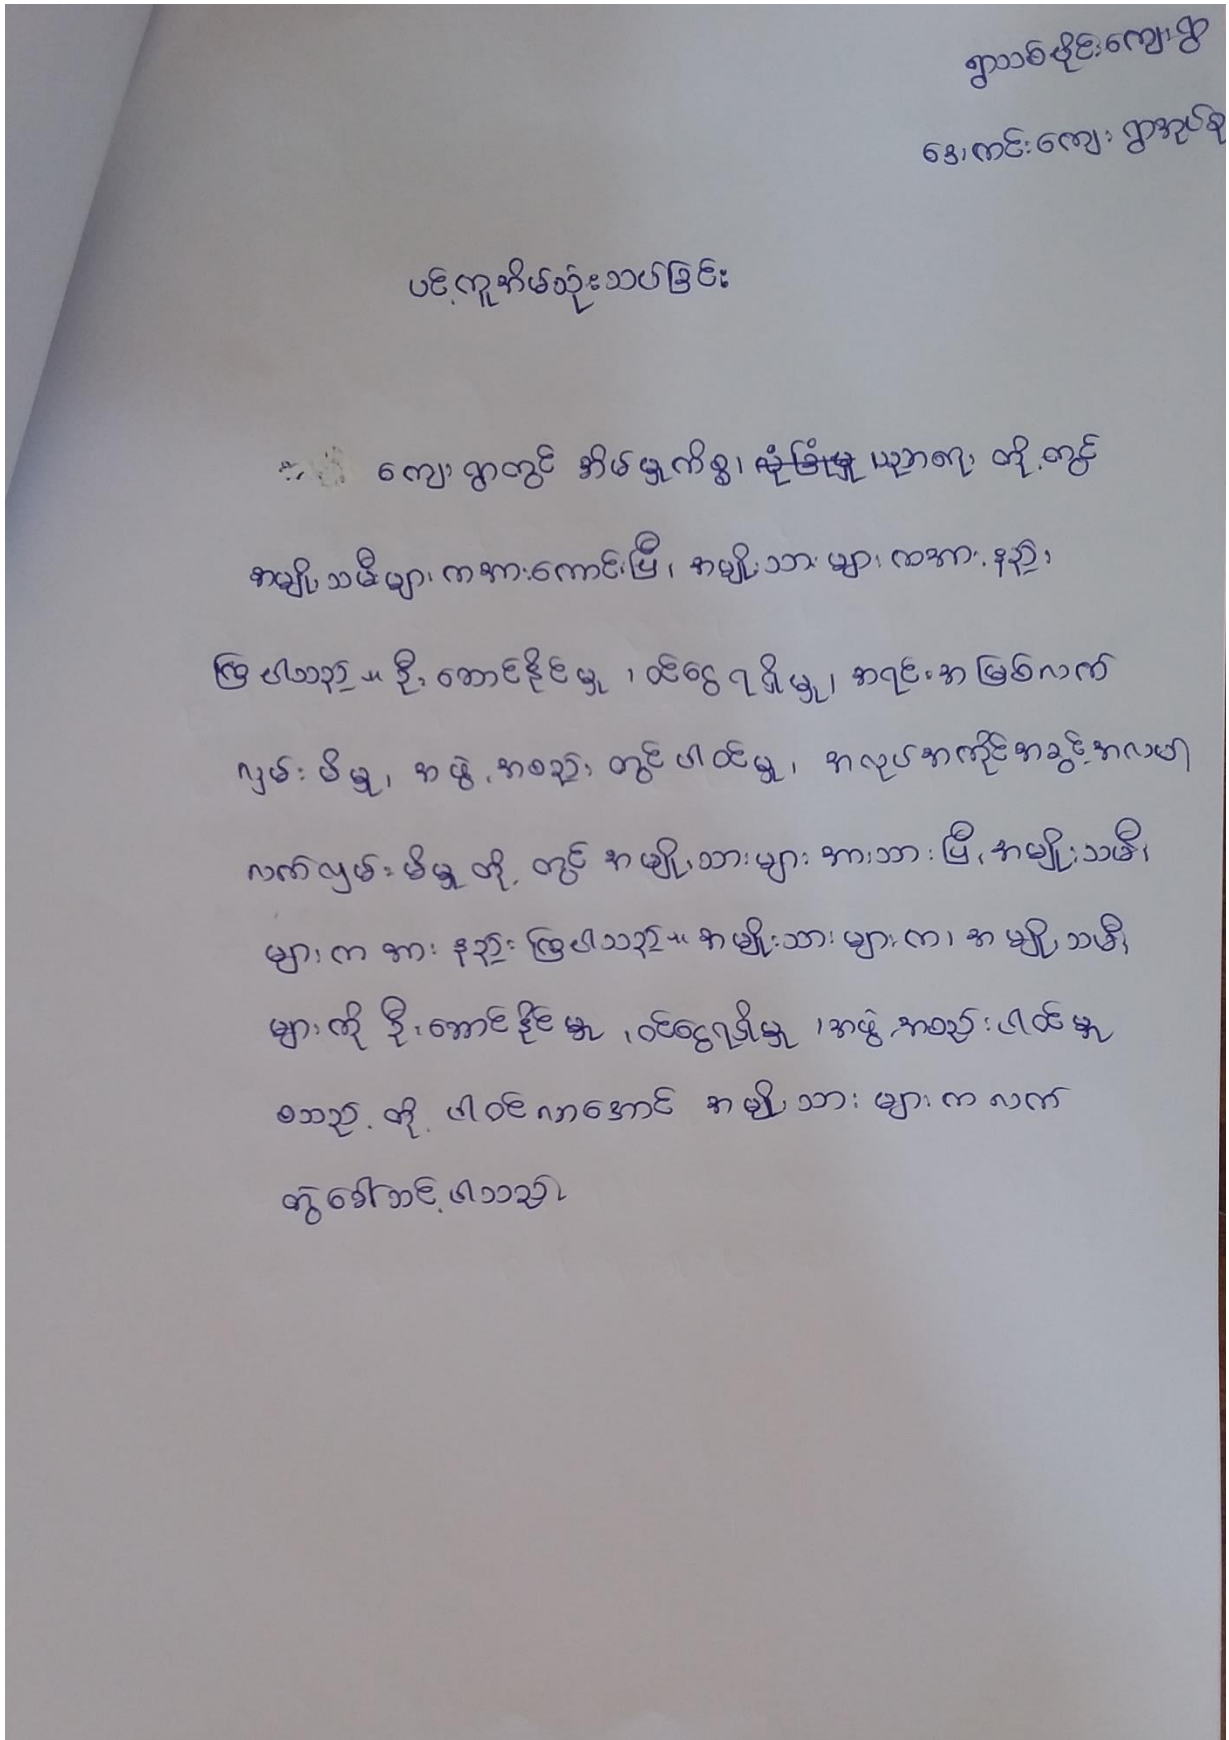 ရွာသစ်ဗိုင်းကျေးရွာ
ဒေါကင်းကျေးရွာအုပ်စု
ပင့်ကူအိမ်သုံးသပ်ခြင်း
ကျေးရွာတွင် အိမ်မှုကိစ္စ၊ လုံခြုံမှု ပညာရေး တို့တွင်
အမျိုးသမီးများကအားကောင်းပြီး အမျိုးသားများကအားနည်း
ကြပါသည်။ ဦးဆောင်နိုင်မှု၊ ဝင်ငွေရရှိမှု၊ အရင်းအမြစ်လက်
လှမ်းမီမှု၊ အဖွဲ့အစည်းတွင်ပါဝင်မှု၊ အလုပ်အကိုင်အခွင့်အလမ်း
လက်လှမ်းမီမှုတို့တွင် အမျိုးသားများအားသားပြီး အမျိုးသမီး
များက အားနည်းကြပါသည်။ အမျိုးသားများက အမျိုးသမီး
များကို ဦးဆောင်နိုင်မှု၊ ဝင်ငွေရရှိမှု၊ အဖွဲ့အစည်းပါဝင်မှု
စသည်တို့ ပါဝင်လာအောင် အမျိုးသားများက လက်
တွဲခေါ်သင့်ပါသည်။